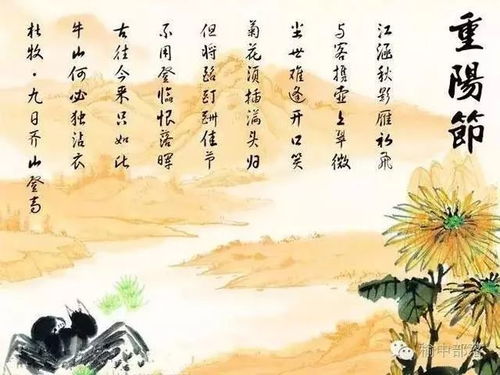 重陽節
江涵秋影雁初飞
与客携壶上翠微
尘世难逢开口笑
菊花须插满头归
但将酩酊酬佳节
不用登临恨落晖
古往今来只如此
牛山何必独沾衣
杜牧·九日齐山登高
榆中部落